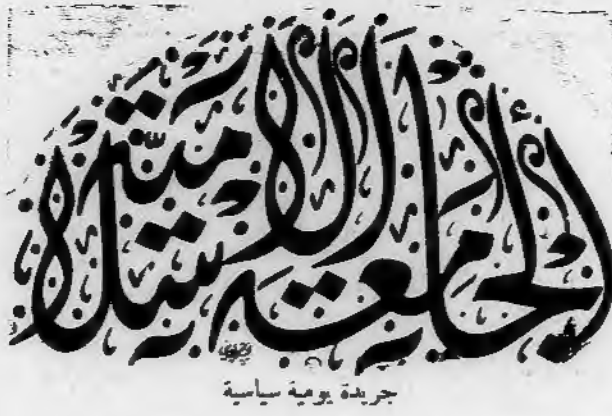 الجامعة الإسلامية
جريدة يومية سياسية